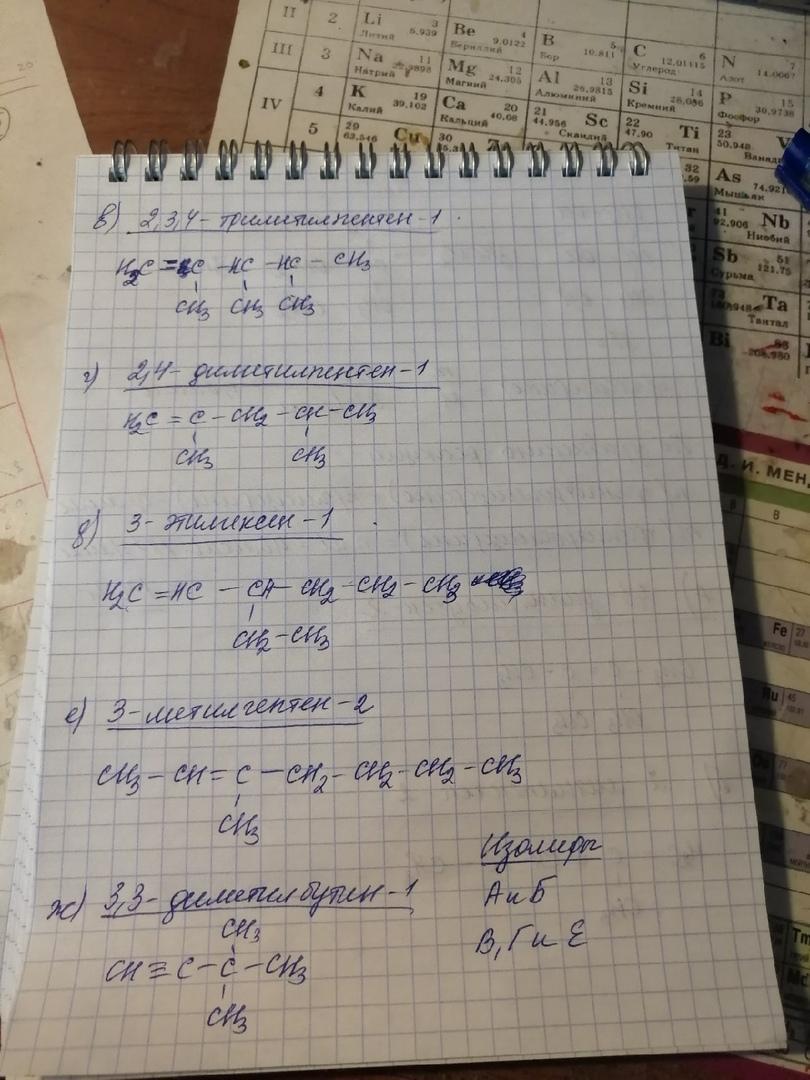 II 2 Li 3 Литий 6.939 Be 4 Бериллий 9.0122 B 5 Бор 10.811 C 6 Углерод 12.01115 N 7 Азот 14.0067
III 3 Na 11 Натрий 22.9898 Mg 12 Магний 24.305 Al 13 Алюминий 26.9815 Si 14 Кремний 28.086 P 15 Фосфор 30.9738
IV 4 K 19 Калий 39.102 Ca 20 Кальций 40.08 21 Sc 44.956 Скандий 22 Ti 47.90 Титан 23 V 50.948
5 29 Cu 63.546 30
As
Мышьяк 74.921
41 Nb 92.906 Ниобий
Sb 51
Сурьма 121.75
Ta
Тантал
Bi 83
208.980
Д. И. МЕН
Fe 27
Ru 45
Tm
в) 2,3,4-триметилпентен-1
H₂C = C - HC - HC - CH₃
CH₃ CH₃ CH₃
г) 2,4-диметилпентен-1
H₂C = C - CH₂ - CH - CH₃
CH₃ CH₃
д) 3-этилгексен-1
H₂C = HC - CH - CH₂ - CH₂ - CH₃
CH₂ - CH₃
е) 3-метилгептен-2
CH₃ - CH = C - CH₂ - CH₂ - CH₂ - CH₃
CH₃
Изомеры
А и Б
В, Г и Е
ж) 3,3-диметилбутин-1
CH₃
CH ≡ C - C - CH₃
CH₃